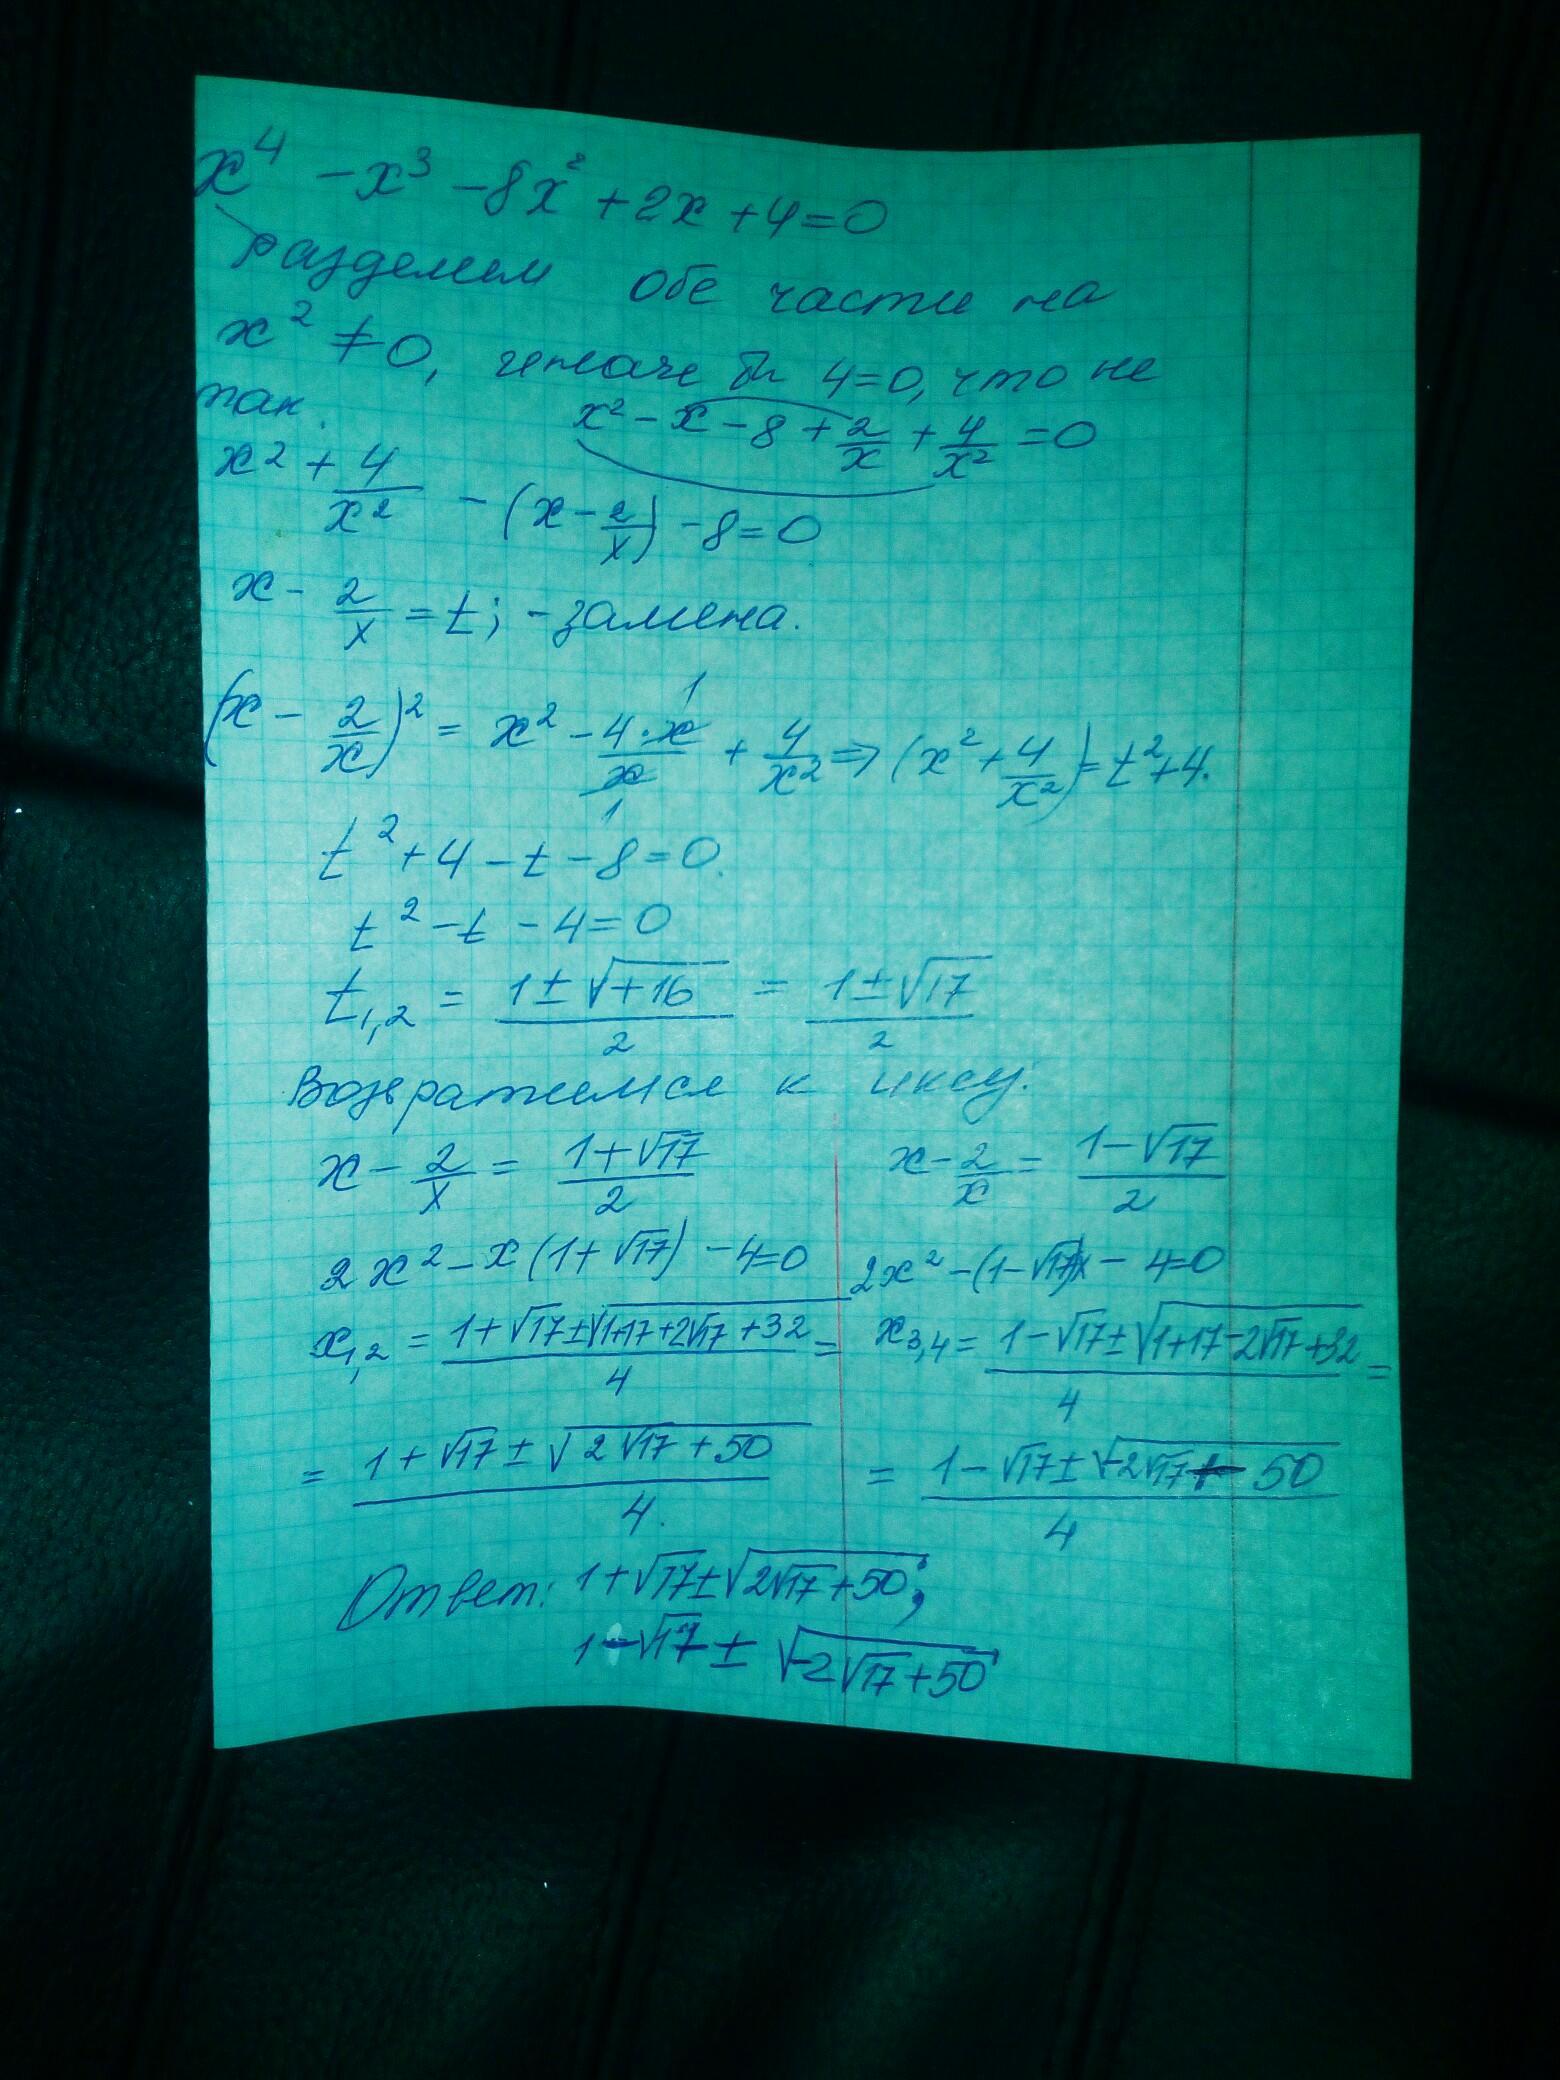 x⁴ - x³ - 8x² + 2x + 4 = 0
разделим обе части на
x² ≠ 0, иначе бы 4=0, что не
так.
x² - x - 8 + 2/x + 4/x² = 0
x² + 4/x² - (x - 2/x) - 8 = 0
x - 2/x = t; - замена.
(x - 2/x)² = x² - 4·x/x + 4/x² ⇒ (x² + 4/x²) = t² + 4.
1
1
t² + 4 - t - 8 = 0.
t² - t - 4 = 0
t₁,₂ = (1 ± √(+16))/2 = (1 ± √17)/2
Возвратимся к иксу:
x - 2/x = (1 + √17)/2
2x² - x(1 + √17) - 4 = 0
x₁,₂ = (1 + √17 ± √(1+17+2√17+32))/4 =
= (1 + √17 ± √(2√17 + 50))/4.
x - 2/x = (1 - √17)/2
2x² - (1 - √17)x - 4 = 0
x₃,₄ = (1 - √17 ± √(1+17-2√17+32))/4 =
= (1 - √17 ± √(-2√17 + 50))/4
Ответ: 1 + √17 ± √(2√17 + 50);
1 - √17 ± √(-2√17 + 50)